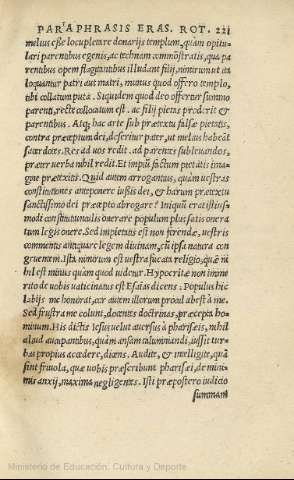 PARA PHRASIS ERAS. ROT. 221
melius esse locupletare donarijs templum, quàm opitu-
lari parentibus egenis, ac technam commõstratis, qua pa
rentibus opem flagitantibus illudant filij, nimirum ut ita
loquantur patri aut matri, munus quod offero templo,
tibi collatum puta. Siquidem quod deo offertur summo
parenti, recte collocatum est. ac filij pietas proderit &
parentibus. Atq; hac arte sub prætextu falsæ pietatis,
contra præceptum dei, deseritur pater, ut melius habeãt
sacerdotes. Res ad uos redit. ad parentes subleuandos,
præter uerba nihil redit. Et impiũ factum pietatis imagi-
gne prætexitis. Quid autem arrogantius, quàm uestras
constitutiones anteponere iussis dei, & harum prætextu
sanctissimo dei præcepto abrogare? Iniquũ erat istius-
modi constitutiunculis onerare populum plus satis onera
tum legis onere. Sed impietas est non ferendæ, uestris
commentis antiquare legem diuinam, cũ ipsa natura con
gruentem. Ista nimirum est uestra fucata religio, quæ ni
hil est minus quàm quod uidetur. Hypocritæ non imme
rito de uobis uaticinatus est Esaias dicens: Populus hic
labijs me honorat, cor autem illorum procul abest à me.
Sed frustra me colunt, docentes doctrinas, præcepta ho-
minum. His dictis Iesus uelut auersus à pharisæis, nihil
aliud aucupantibus, quàm ansam calumniandi, iussit tur-
bas propius accedere, dicens, Audite, & intelligite, quã
sint friuola, quæ uobis præscribunt pharisæi, de mini-
mis anxij, maxima negligentes. Isti præpostero iudicio
summam
Ministerio de Educación, Cultura y Deporte